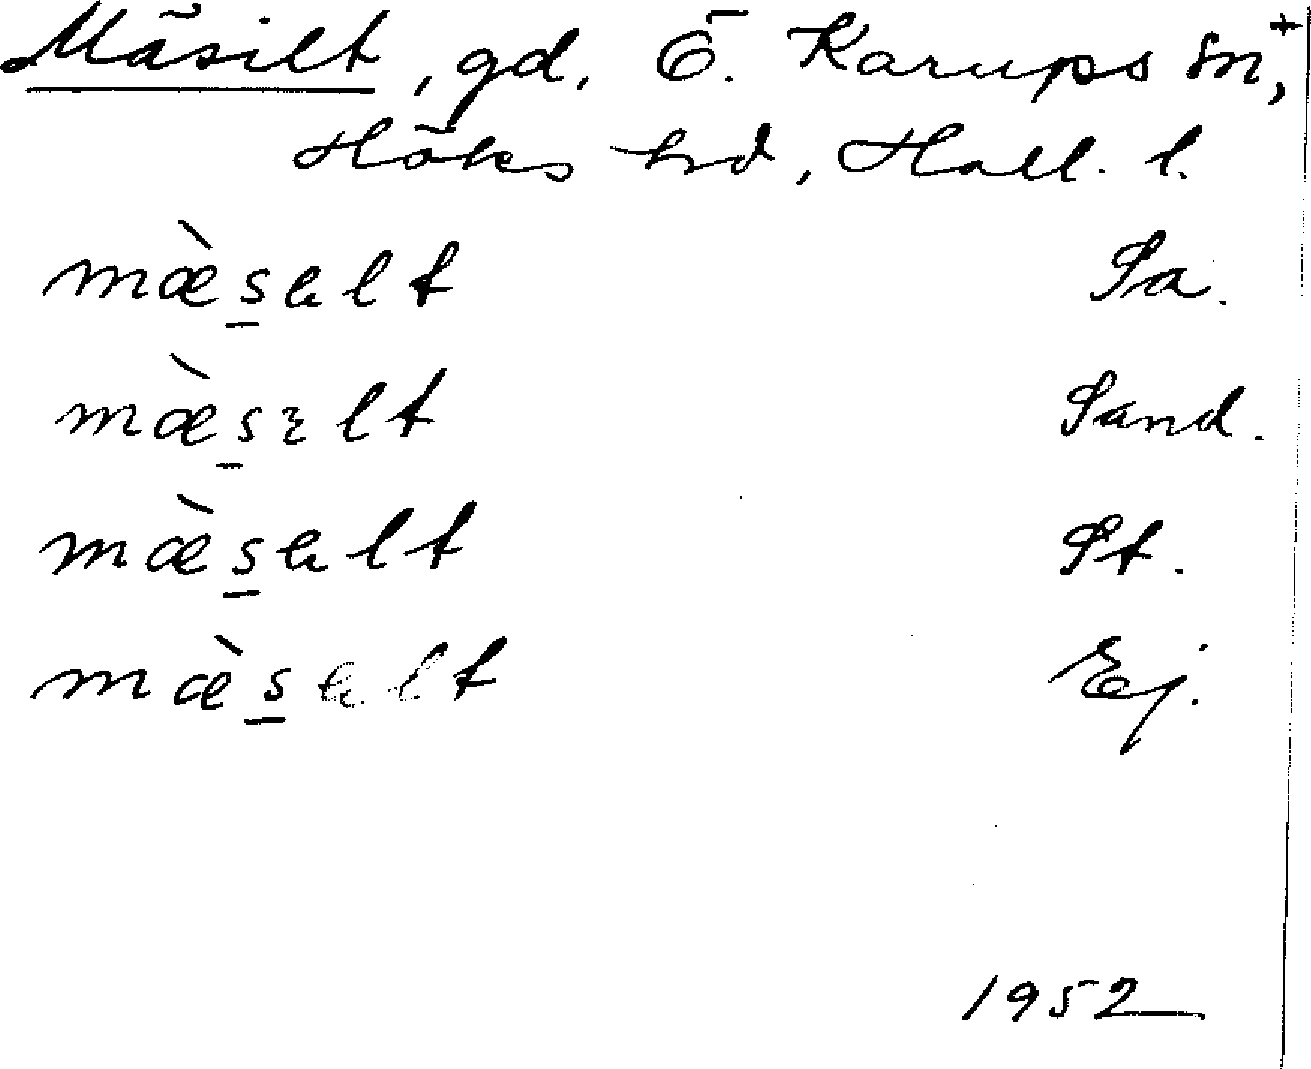 Mäsilt, gd, Ö. Karups sn,+
Höks hd, Hall. l.
mæ̀s̠ɐlt Sa.
mæ̀s̠ɛlt Sand.
mæ̀s̠ɐlt St.
mæ̀s̠ɐlt Ej.
1952